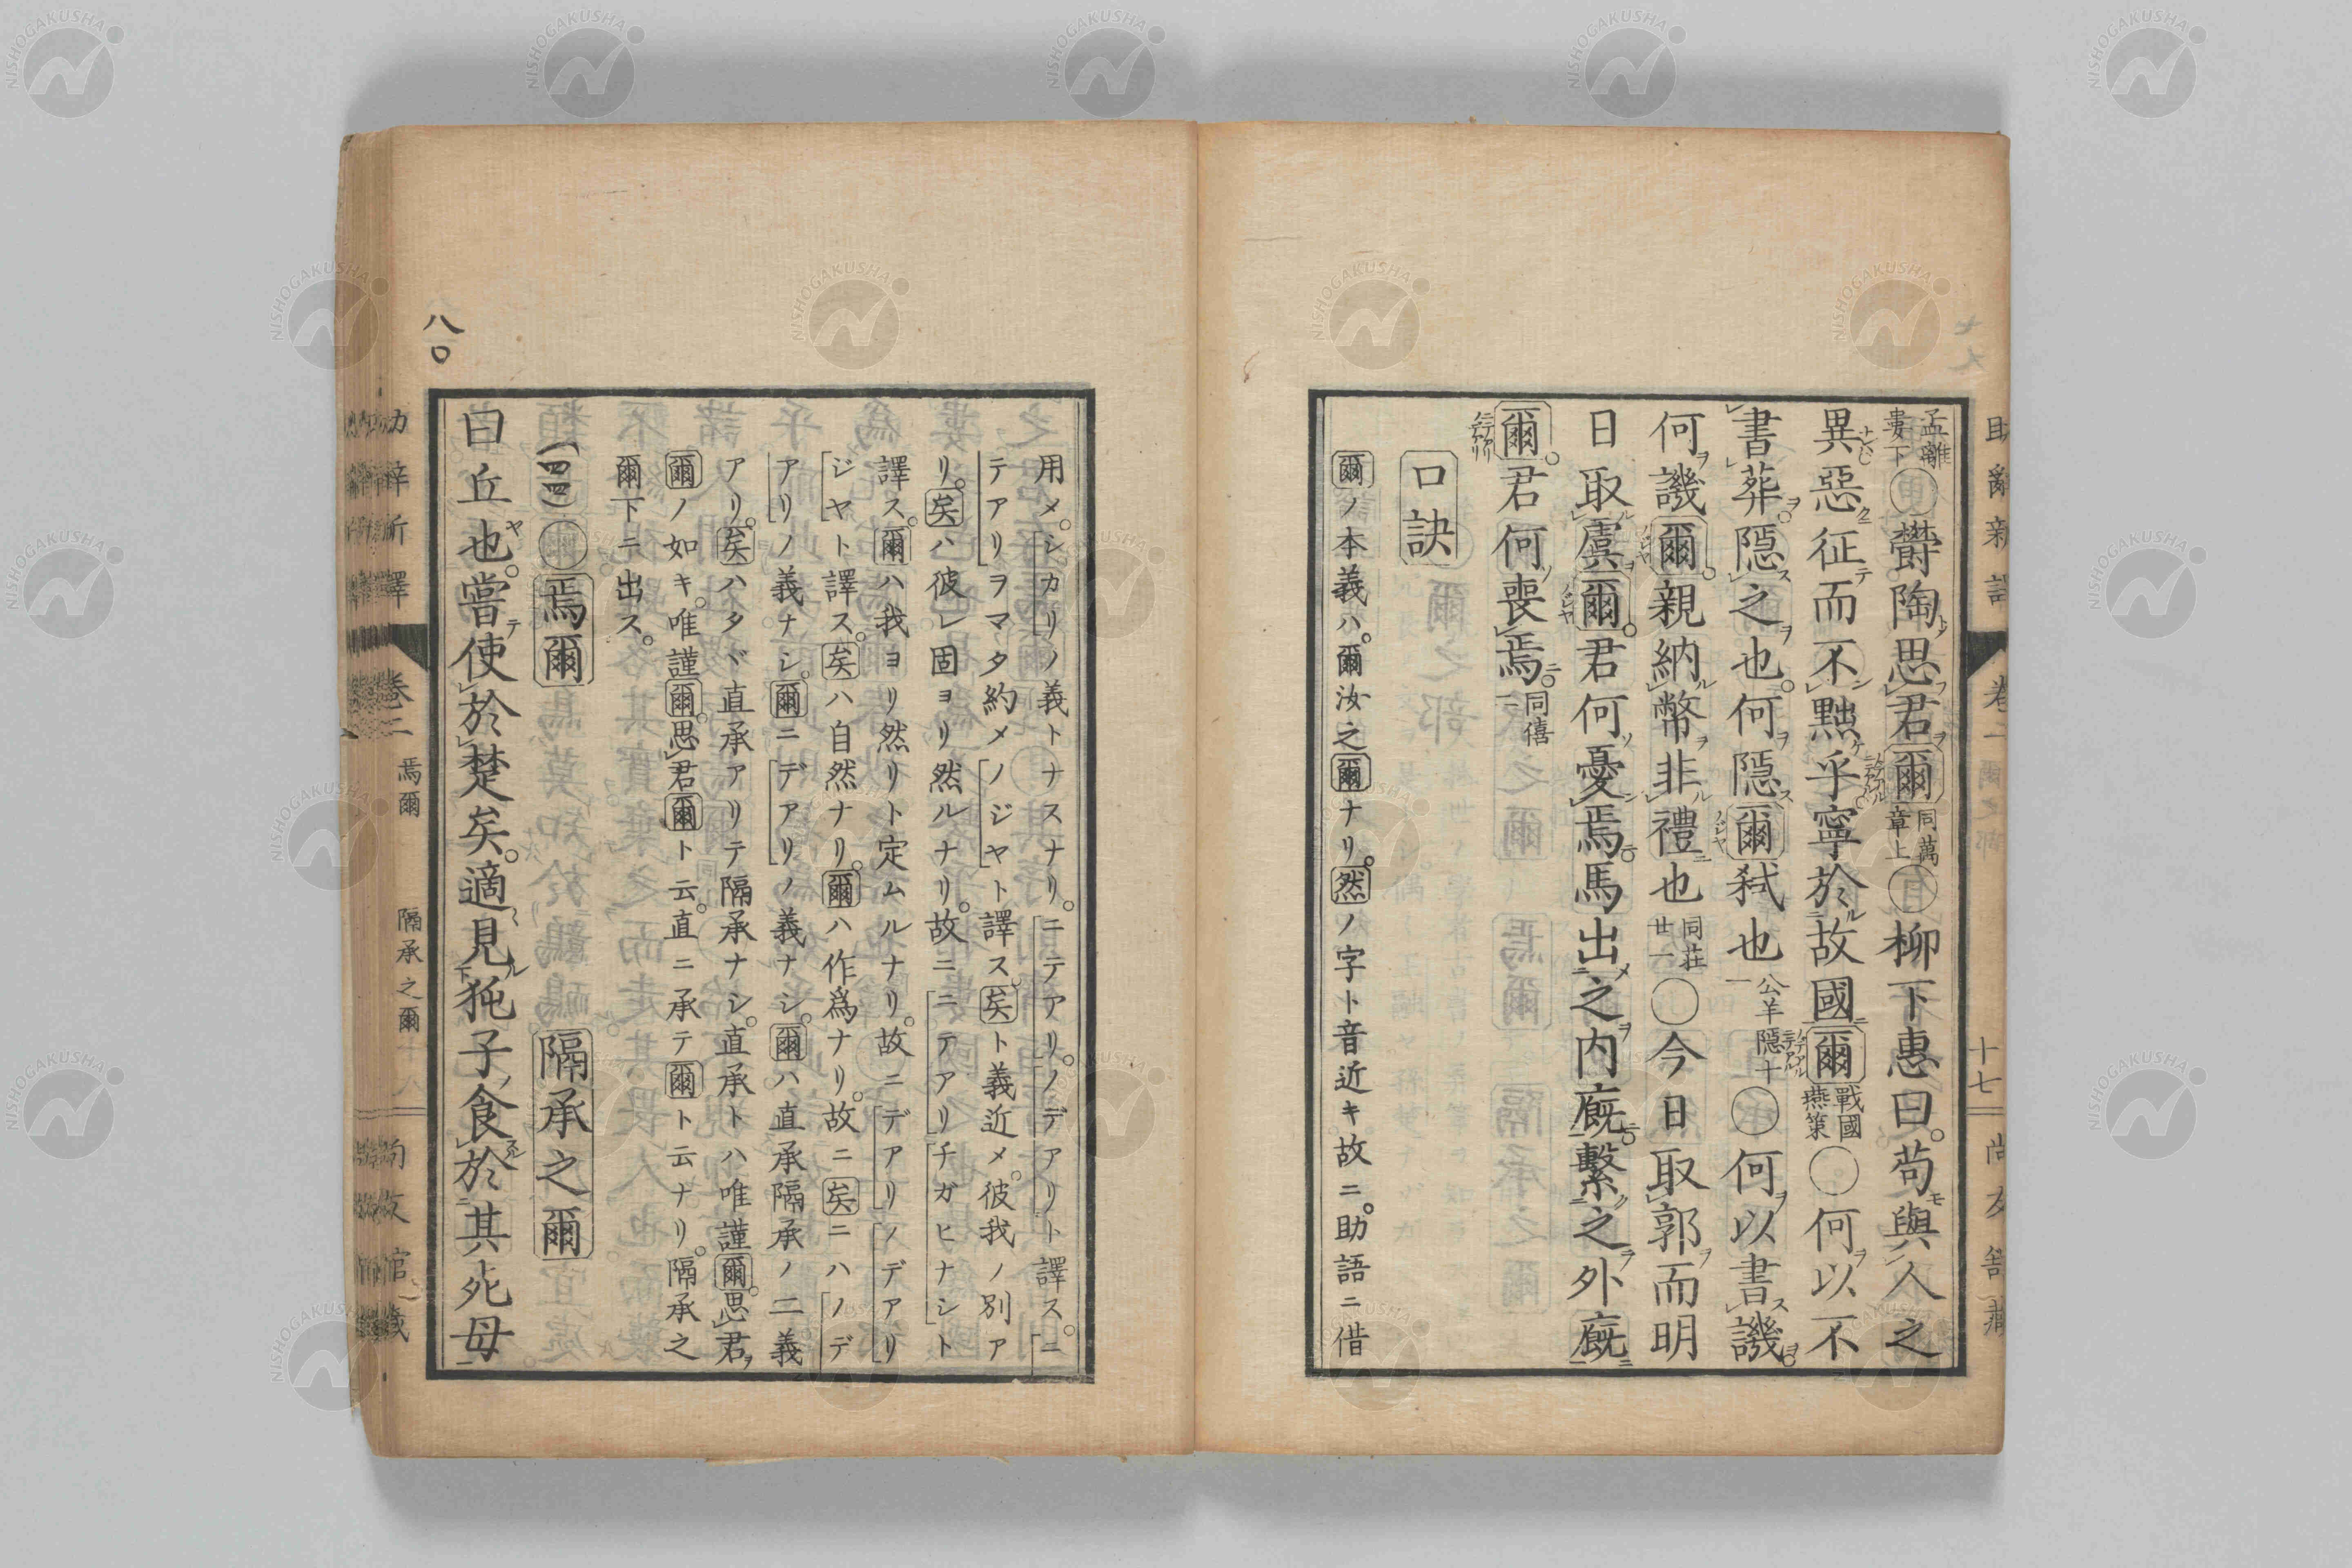 孟離婁下○鬱陶思君爾同萬章上○柳下惠曰。苟與人之
異惡征而不黜乎寧於故國爾戰國燕策○何以不
書葬。隠之也。何隠爾弑也公羊隠十一○何以書譏
何譏爾。親納幣非禮也同荘廿一○今日取郭而明
日取虞爾。君何憂焉。馬出之内廐。繫之外廐
爾。君何喪焉。同僖二
口訣
爾ノ本義ハ。爾汝之爾ナリ。然ノ字ト音近キ故ニ。助語ニ借
八〇
用メ。シカリノ義トナスナリ。ニテアリ。ノデアリト譯ス。ニ
テアリヲマタ約メノジヤト譯ス。矣ト義近メ。彼我ノ別ア
リ。矣ハ彼レ固ヨリ然ルナリ。故ニニテアリチガヒナシト
譯ス。爾ハ我ヨリ然リト定ムルナリ。故ニデアリノデアリ
ジヤト譯ス。矣ハ自然ナリ。爾ハ作爲ナリ。故ニ矣ニハノデ
アリノ義ナシ。爾ニデアリノ義ナシ。爾ハ直承隔承ノ二義
アリ。矣ハタヾ直承アリテ隔承ナシ。直承トハ唯謹爾。思君
爾ノ如キ。唯謹爾。思君爾ト云。直ニ承テ爾ト云ナリ。隔承之
爾下ニ出ス。
(四四)○焉爾 隔承之爾
曰丘也。嘗使於楚矣。適見㹠子食於其死母
卷二 焉爾 隔承之爾